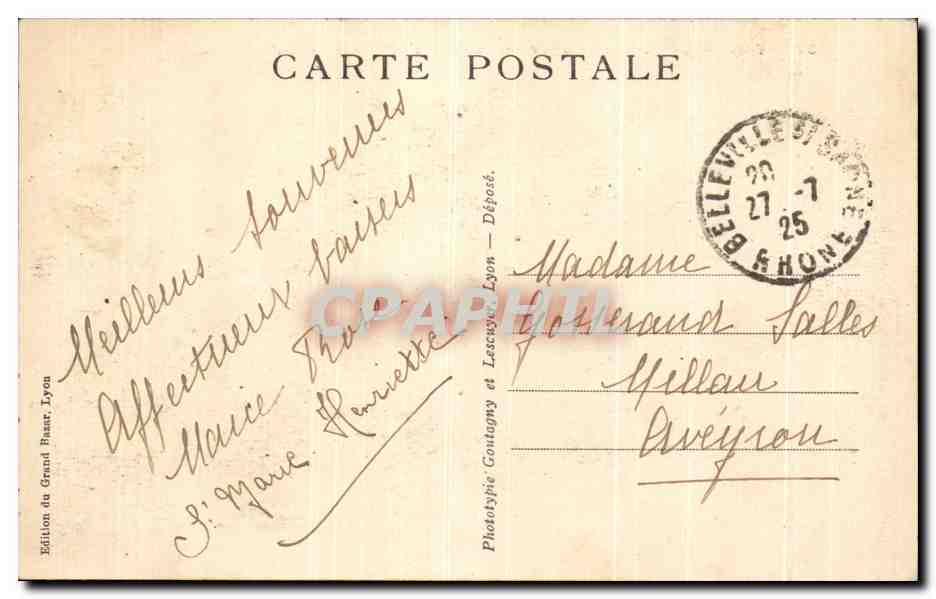 CARTE POSTALE
Meilleurs souvenirs
Affectueux baisers
Marice Rose
Sr Marie Henriette
Edition du Grand Bazar, Lyon
Phototypie Goutagny et Lescuyer, Lyon — Déposé.
BELLEVILLE S/ SAONE
RHONE
20
27 -7
25
Madame
Gosserand Salles
Millau
Aveyron
CPAPHIL